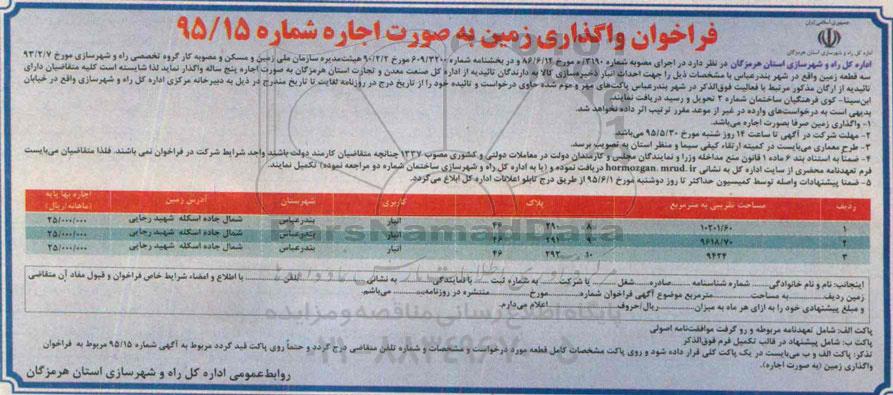 جمهوری اسلامی ایران
اداره کل راه و شهرسازی استان هرمزگان
فراخوان واگذاری زمین به صورت اجاره شماره ۹۵/۱۵
اداره کل راه و شهرسازی استان هرمزگان در نظر دارد در اجرای مصوبه شماره ۰/۳۱۹۰ مورخ ۸۶/۶/۱۲ و در بخشنامه شماره ۶۰۹/۳۲۰۰ مورخ ۹۰/۲/۲ هیئت‌مدیره سازمان ملی زمین و مسکن و مصوبه کار گروه تخصصی راه و شهرسازی مورخ ۹۳/۲/۷
سه قطعه زمین واقع در شهر بندرعباس با مشخصات ذیل را جهت احداث انبار ذخیره‌سازی کالا به دارندگان تائیدیه از اداره کل صنعت معدن و تجارت استان هرمزگان به صورت اجاره پنج ساله واگذار نماید لذا شایسته است کلیه متقاضیان دارای
تائیدیه از ارگان مذکور مرتبط با فعالیت فوق‌الذکر در شهر بندرعباس پاکت‌های مهر و موم شده حاوی درخواست و تائیده خود را از تاریخ درج در روزنامه لغایت تا تاریخ مندرج در ذیل به دبیرخانه مرکزی اداره کل راه و شهرسازی واقع در خیابان
ابن‌سینا- کوی فرهنگیان ساختمان شماره ۲ تحویل و رسید دریافت نمایند.
بدیهی است به درخواست‌های وارده در غیر از موعد مقرر ترتیب اثر داده نخواهد شد.
۱- واگذاری زمین صرفا بصورت اجاره می‌باشد.
۲- مهلت شرکت در آگهی تا ساعت ۱۴ روز شنبه مورخ ۹۵/۵/۳۰ می‌باشد.
۳- طرح معماری می‌بایست در کمیته ارتقاء کیفی سیما و منظر استان به تصویب برسد.
۴- ضمناً به استناد بند ۶ ماده ۱ قانون منع مداخله وزرا و نمایندگان مجلس و کارمندان دولت در معاملات دولتی و کشوری مصوب ۱۳۳۷ چنانچه متقاضیان کارمند دولت باشند واجد شرایط شرکت در فراخوان نمی باشند. فلذا متقاضیان می‌بایست
فرم تعهدنامه محضری از سایت اداره کل به نشانی hormozgan. mrud. ir دریافت نموده و (یا به اداره کل راه و شهرسازی ساختمان شماره دو مراجعه نموده) تکمیل نمایند.
۵- ضمنا پیشنهادات واصله توسط کمیسیون حداکثر تا روز دوشنبه مورخ ۹۵/۶/۱ از طریق درج تابلو اعلانات اداره کل ابلاغ می‌گردد.
ردیف مساحت تقریبی به مترمربع پلاک کاربری شهرستان آدرس زمین اجاره بها پایه (ماهانه/ریال)
۱ ۱۰۲۰۱/۶۰ ۸ ۲۹۰ ۴۶ انبار بندرعباس شمال جاده اسکله شهید رجایی ۲۵/۰۰۰/۰۰۰
۲ ۹۶۱۸/۷۰ ۹ ۲۹۱ ۴۶ انبار بندرعباس شمال جاده اسکله شهید رجایی ۲۵/۰۰۰/۰۰۰
۳ ۹۴۲۴ ۱۰ ۲۹۲ ۴۶ انبار بندرعباس شمال جاده اسکله شهید رجایی ۲۵/۰۰۰/۰۰۰
اینجانب: نام و نام خانوادگی........ شماره شناسنامه ........ صادره........شغل ........ یا شرکت........ به شماره ثبت ........ با نمایندگی........ به نشانی........ تلفن ........ با اطلاع و امضاء شرایط خاص فراخوان و قبول مفاد آن متقاضی
زمین ردیف........ به مساحت........ مترمربع موضوع آگهی فراخوان شماره........ مورخ........ منتشره در روزنامه........ می‌باشم.
و مبلغ پیشنهادی خود را به ازای هر ماه به میزان........ ریال/حروف........ اعلام می‌دارم.
پاکت الف: شامل تعهدنامه مربوطه و رو گرفت موافقت‌نامه اصولی
پاکت ب: شامل پیشنهاد در قالب تکمیل فرم فوق‌الذکر
تذکر: پاکت الف و ب می‌بایست در یک پاکت کلی قرار داده شود و روی پاکت مشخصات کامل قطعه مورد درخواست و مشخصات و شماره تلفن متقاضی درج گردد و حتماً روی پاکت قید گردد مربوط به آگهی شماره ۹۵/۱۵ مربوط به فراخوان
واگذاری زمین (به صورت اجاره).
روابط عمومی اداره کل راه و شهرسازی استان هرمزگان
ParsNamadData
پایگاه اطلاع رسانی مناقصه و مزایده